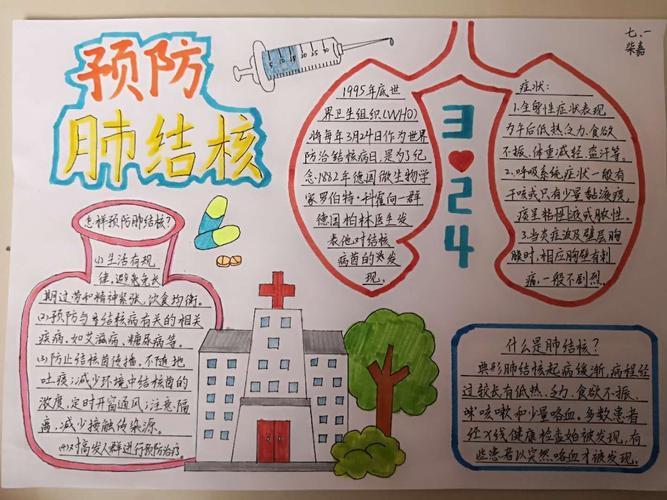 预防
肺结核
七.一
柴嘉
1995年底世
界卫生组织(WHO)
将每年3月24日作为世界
防治结核病日,是为了纪
念1882年德国微生物学
家罗伯特·科霍向一群
德国柏林医生发
表他对结核
病菌的发
现。
3
24
症状:
1.全身性症状表现
为午后低热,乏力,食欲
不振、体重减轻、盗汗等。
2.呼吸系统症状一般有
干咳或只有少量黏液痰,
痰呈粘液或脓性。
3.当炎症波及壁层胸
膜时,相应胸壁有刺
痛,一般不剧烈。
怎样预防肺结核?
(1)生活有规
律,避免
期过劳和精神紧张,饮食均衡。
(2)预防与结核病有关的相关
疾病,如艾滋病、糖尿病等。
(3)防止结核菌传播,不随地
吐痰;减少环境中结核菌的
浓度,定时开窗通风;注意隔
离,减少接触传染源。
(4)对高发人群进行预防治疗
什么是肺结核?
典形肺结核起病缓渐,病程经
过较长有低热、乏力、食欲不振、
咳嗽和少量咯血。多数患者
经X线健康检查始被发现,有
些患者以突然咯血才被发现。